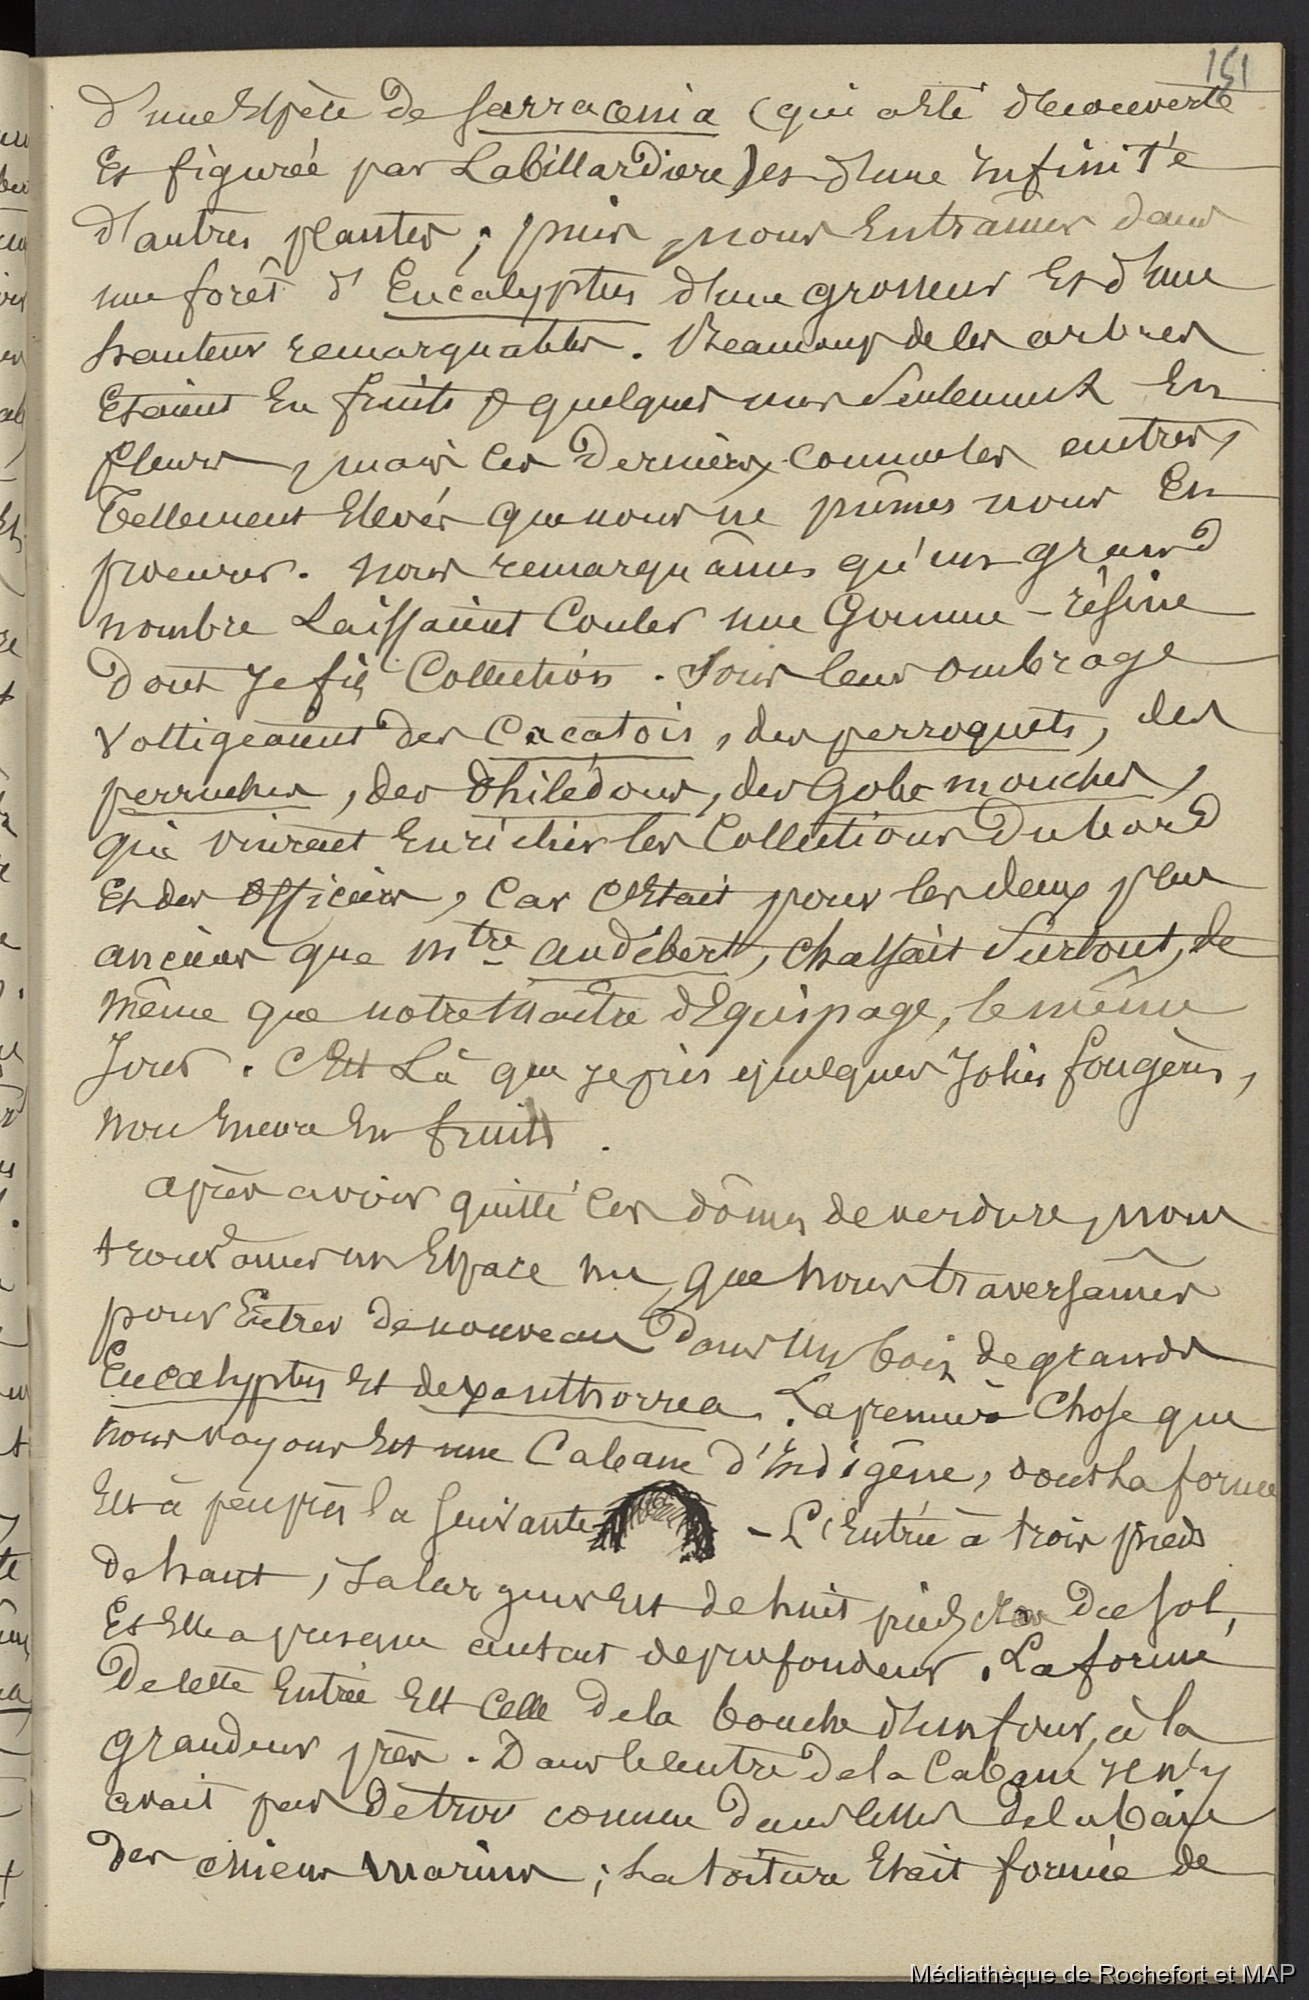 151
d'une Espèce de Sarracenia (qui a été découverte
Et figurée par Labillardiere) et d'une infinité
d'autres plantes ; puis, nous Entrâmes dans
une forêt d' Eucalyptus d'une grosseur Et d'une
hauteur remarquables. Beaucoup de ces arbres
Etaient En fruits & quelques uns Seulement En
fleurs, mais ces Derniers, comme les autres,
Tellement Elevés que nous ne pûmes nous En
procurer. Nous remarquâmes qu'un grand
nombre Laissaient Couler une Gomme-résine
Dont Je fis Collection. Sous leur ombrage
Voltigeaient des Cacatois, des perroquets, des
perruches, des Philédons, des Gobe mouches,
qui vinrent Enrichir les Collections Du bord
Et des Officiers, Car C'Etait pour les deux plus
anciens que Mtre Audebert, Chassait Surtout, de
même que notre Maître d'Equipage, le même
Jour. C'Est Là que Je pris quelques Jolies fougères,
non Encore En fruits.
après avoir quitté Ces dômes de verdure, nous
trouvâmes un Espace nu que nous traversâmes
pour Entrer De nouveau Dans Un bois de grands
Eucalyptus Et de xanthorrea. La première Chose que
nous voyons Est une Cabane d'Indigène, dont La forme
Est à peu près la Suivante - L'Entrée à trois pieds
de haut, Sa largeur Est de huit pieds du Sol,
Et Elle a presque autant de profondeur. La forme
De cette Entrée Est Celle de la bouche d'un four, à la
grandeur près. Dans le centre de la Cabane il n'y
avait pas de trou comme dans celles de la baie
des chiens Marins ; La toiture Etait formée de
Médiathèque de Rochefort et MAP